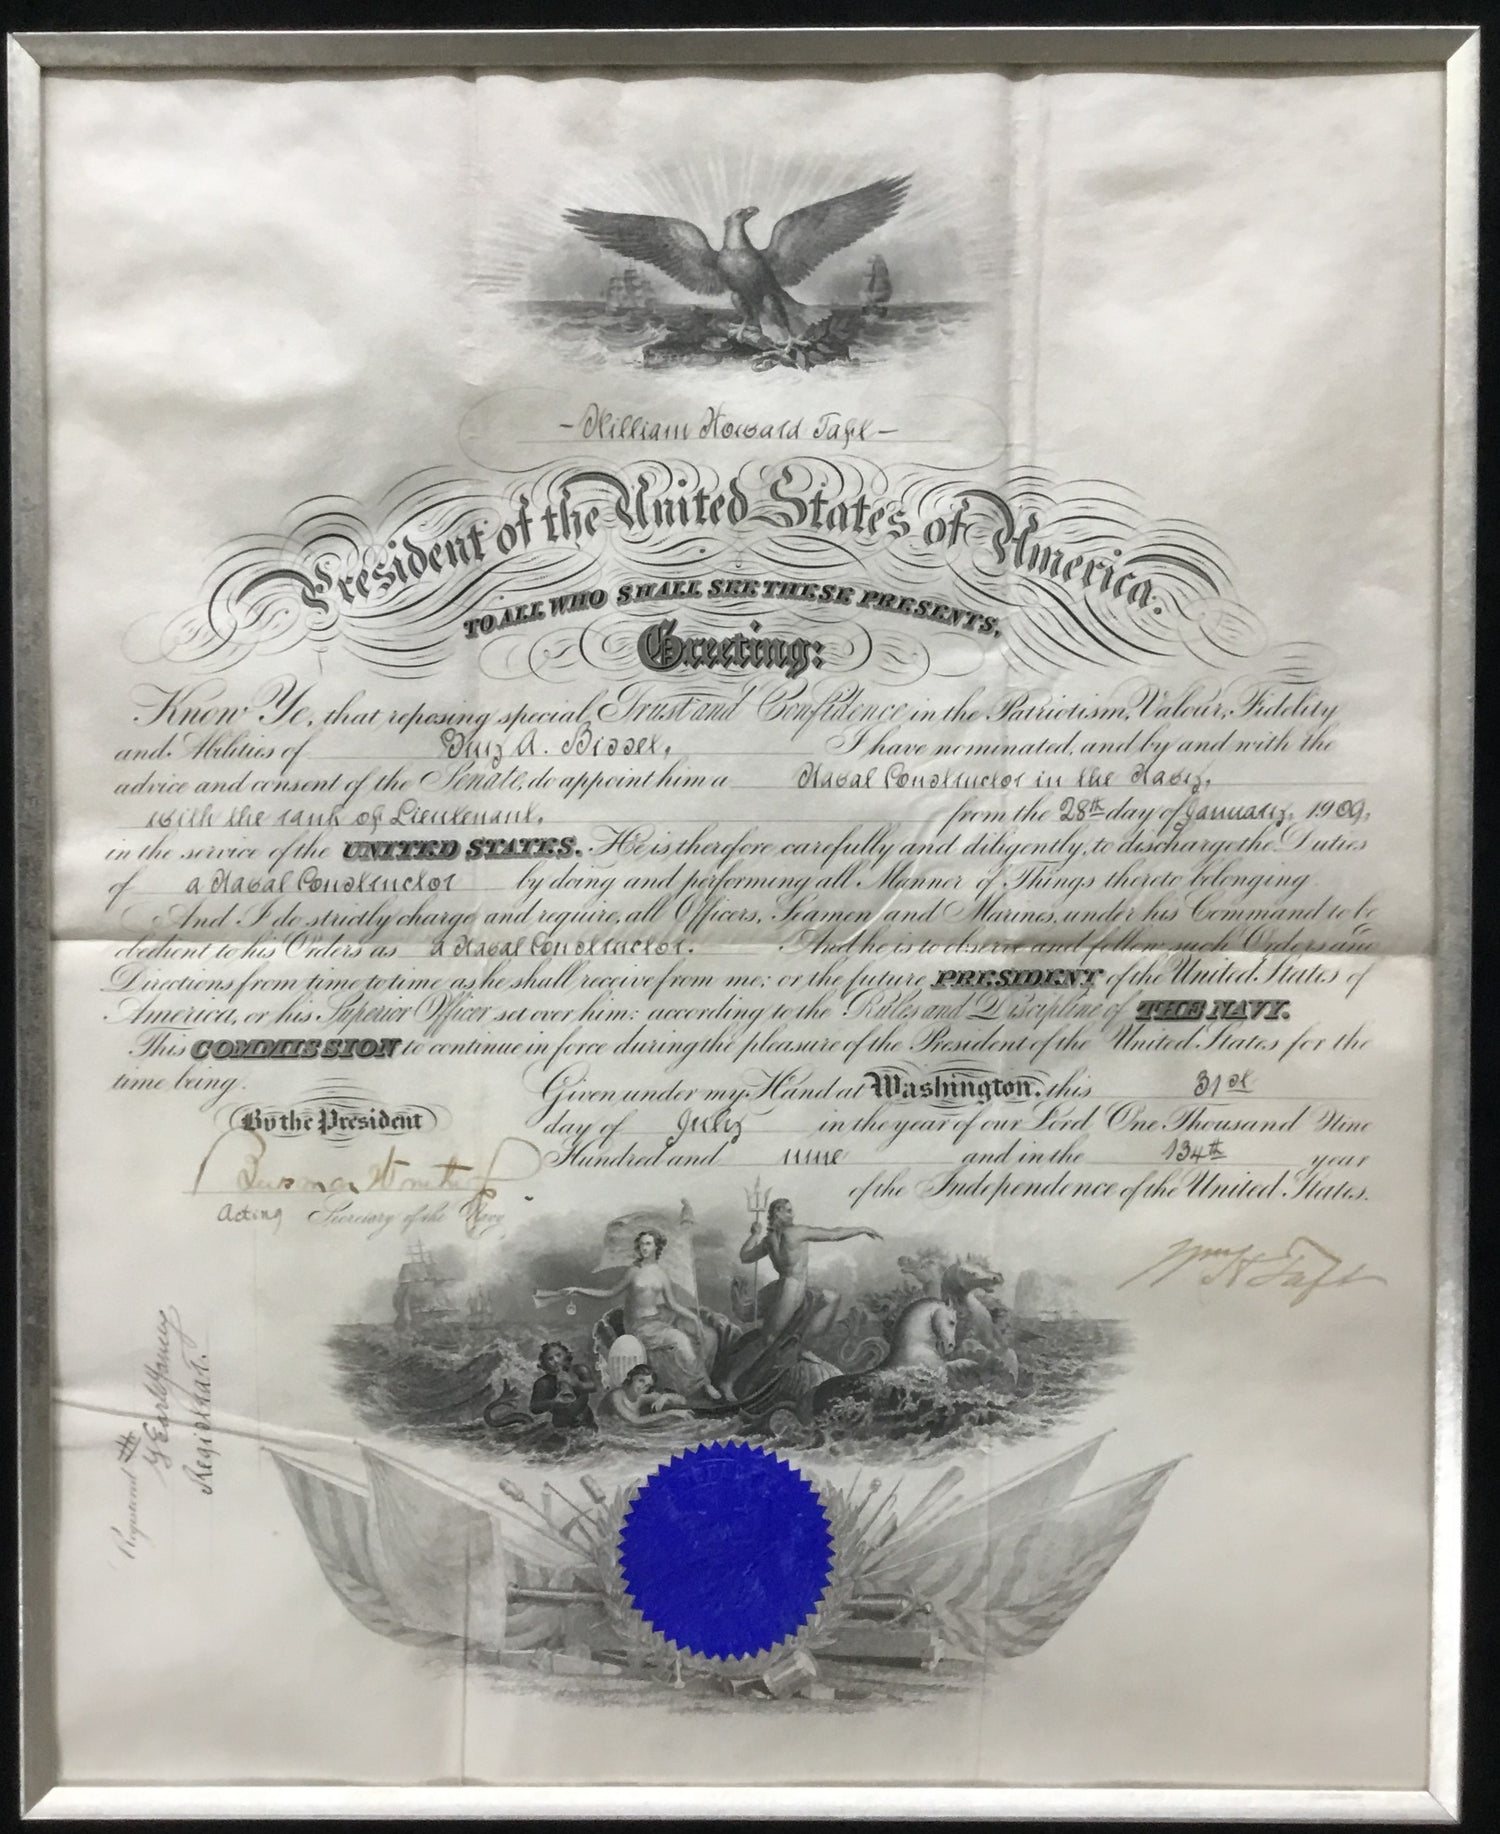 - William Howard Taft -
President of the United States of America.
TO ALL WHO SHALL SEE THESE PRESENTS,
Greeting:
Know Ye, that reposing special Trust and Confidence in the Patriotism, Valour, Fidelity
and Abilities of Guy A. Bisset, I have nominated, and by and with the
advice and consent of the Senate, do appoint him a Naval Constructor in the Navy,
with the rank of Lieutenant, from the 28th day of January, 1909,
in the service of the UNITED STATES. He is therefore carefully and diligently to discharge the Duties
of a Naval Constructor by doing and performing all Manner of Things thereto belonging.
And I do strictly charge and require all Officers, Seamen and Marines, under his Command to be
obedient to his Orders as a Naval Constructor. And he is to observe and follow such Orders and
Directions from time to time as he shall receive from me; or the future PRESIDENT of the United States of
America, or his Superior Officer set over him; according to the Rules and Discipline of THE NAVY.
This COMMISSION to continue in force during the pleasure of the President of the United States for the
time being.
Given under my Hand at Washington, this 31st
By the President
day of July in the year of our Lord One Thousand Nine
Hundred and nine and in the 134th year
of the Independence of the United States.
Acting Secretary of the Navy
Wm H Taft
Registered
Registrar.